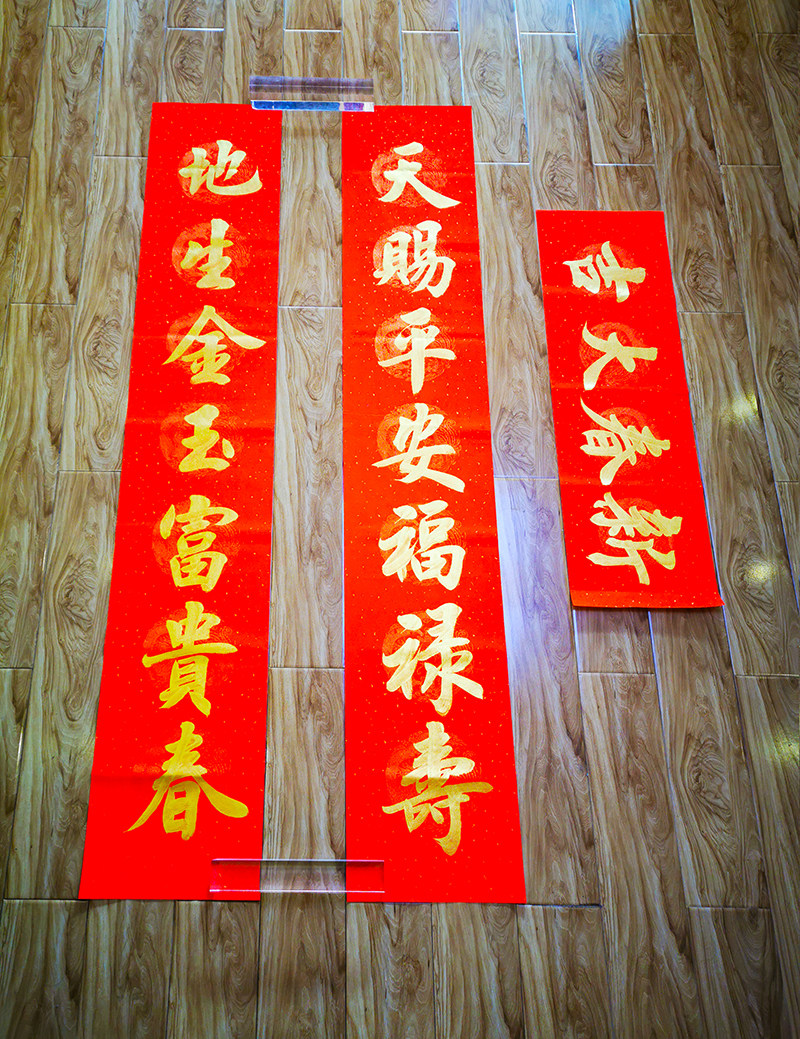 新春大吉
天賜平安福禄壽
地生金玉富貴春